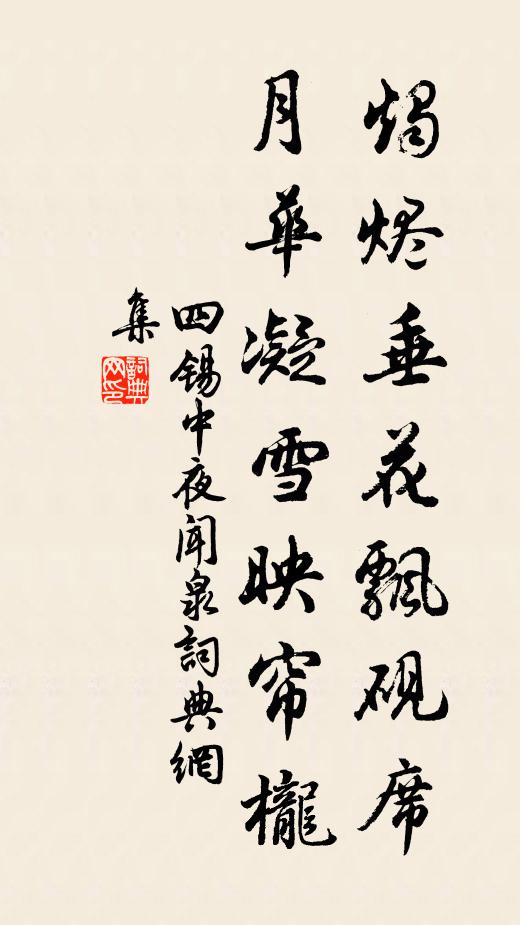 燭烬垂花飄硯席
月華凝雪映帘櫳
四錫中夜聞泉詞典網
集
詞典
网印